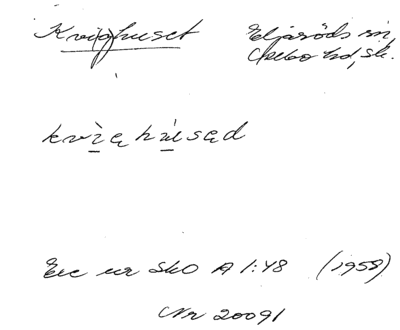 Kvighuset Eljaröds sn,
Albo hd, Sk.
kvìęhúsęd
Exc ur SkO A 1:48 (1958)
Nr 20091